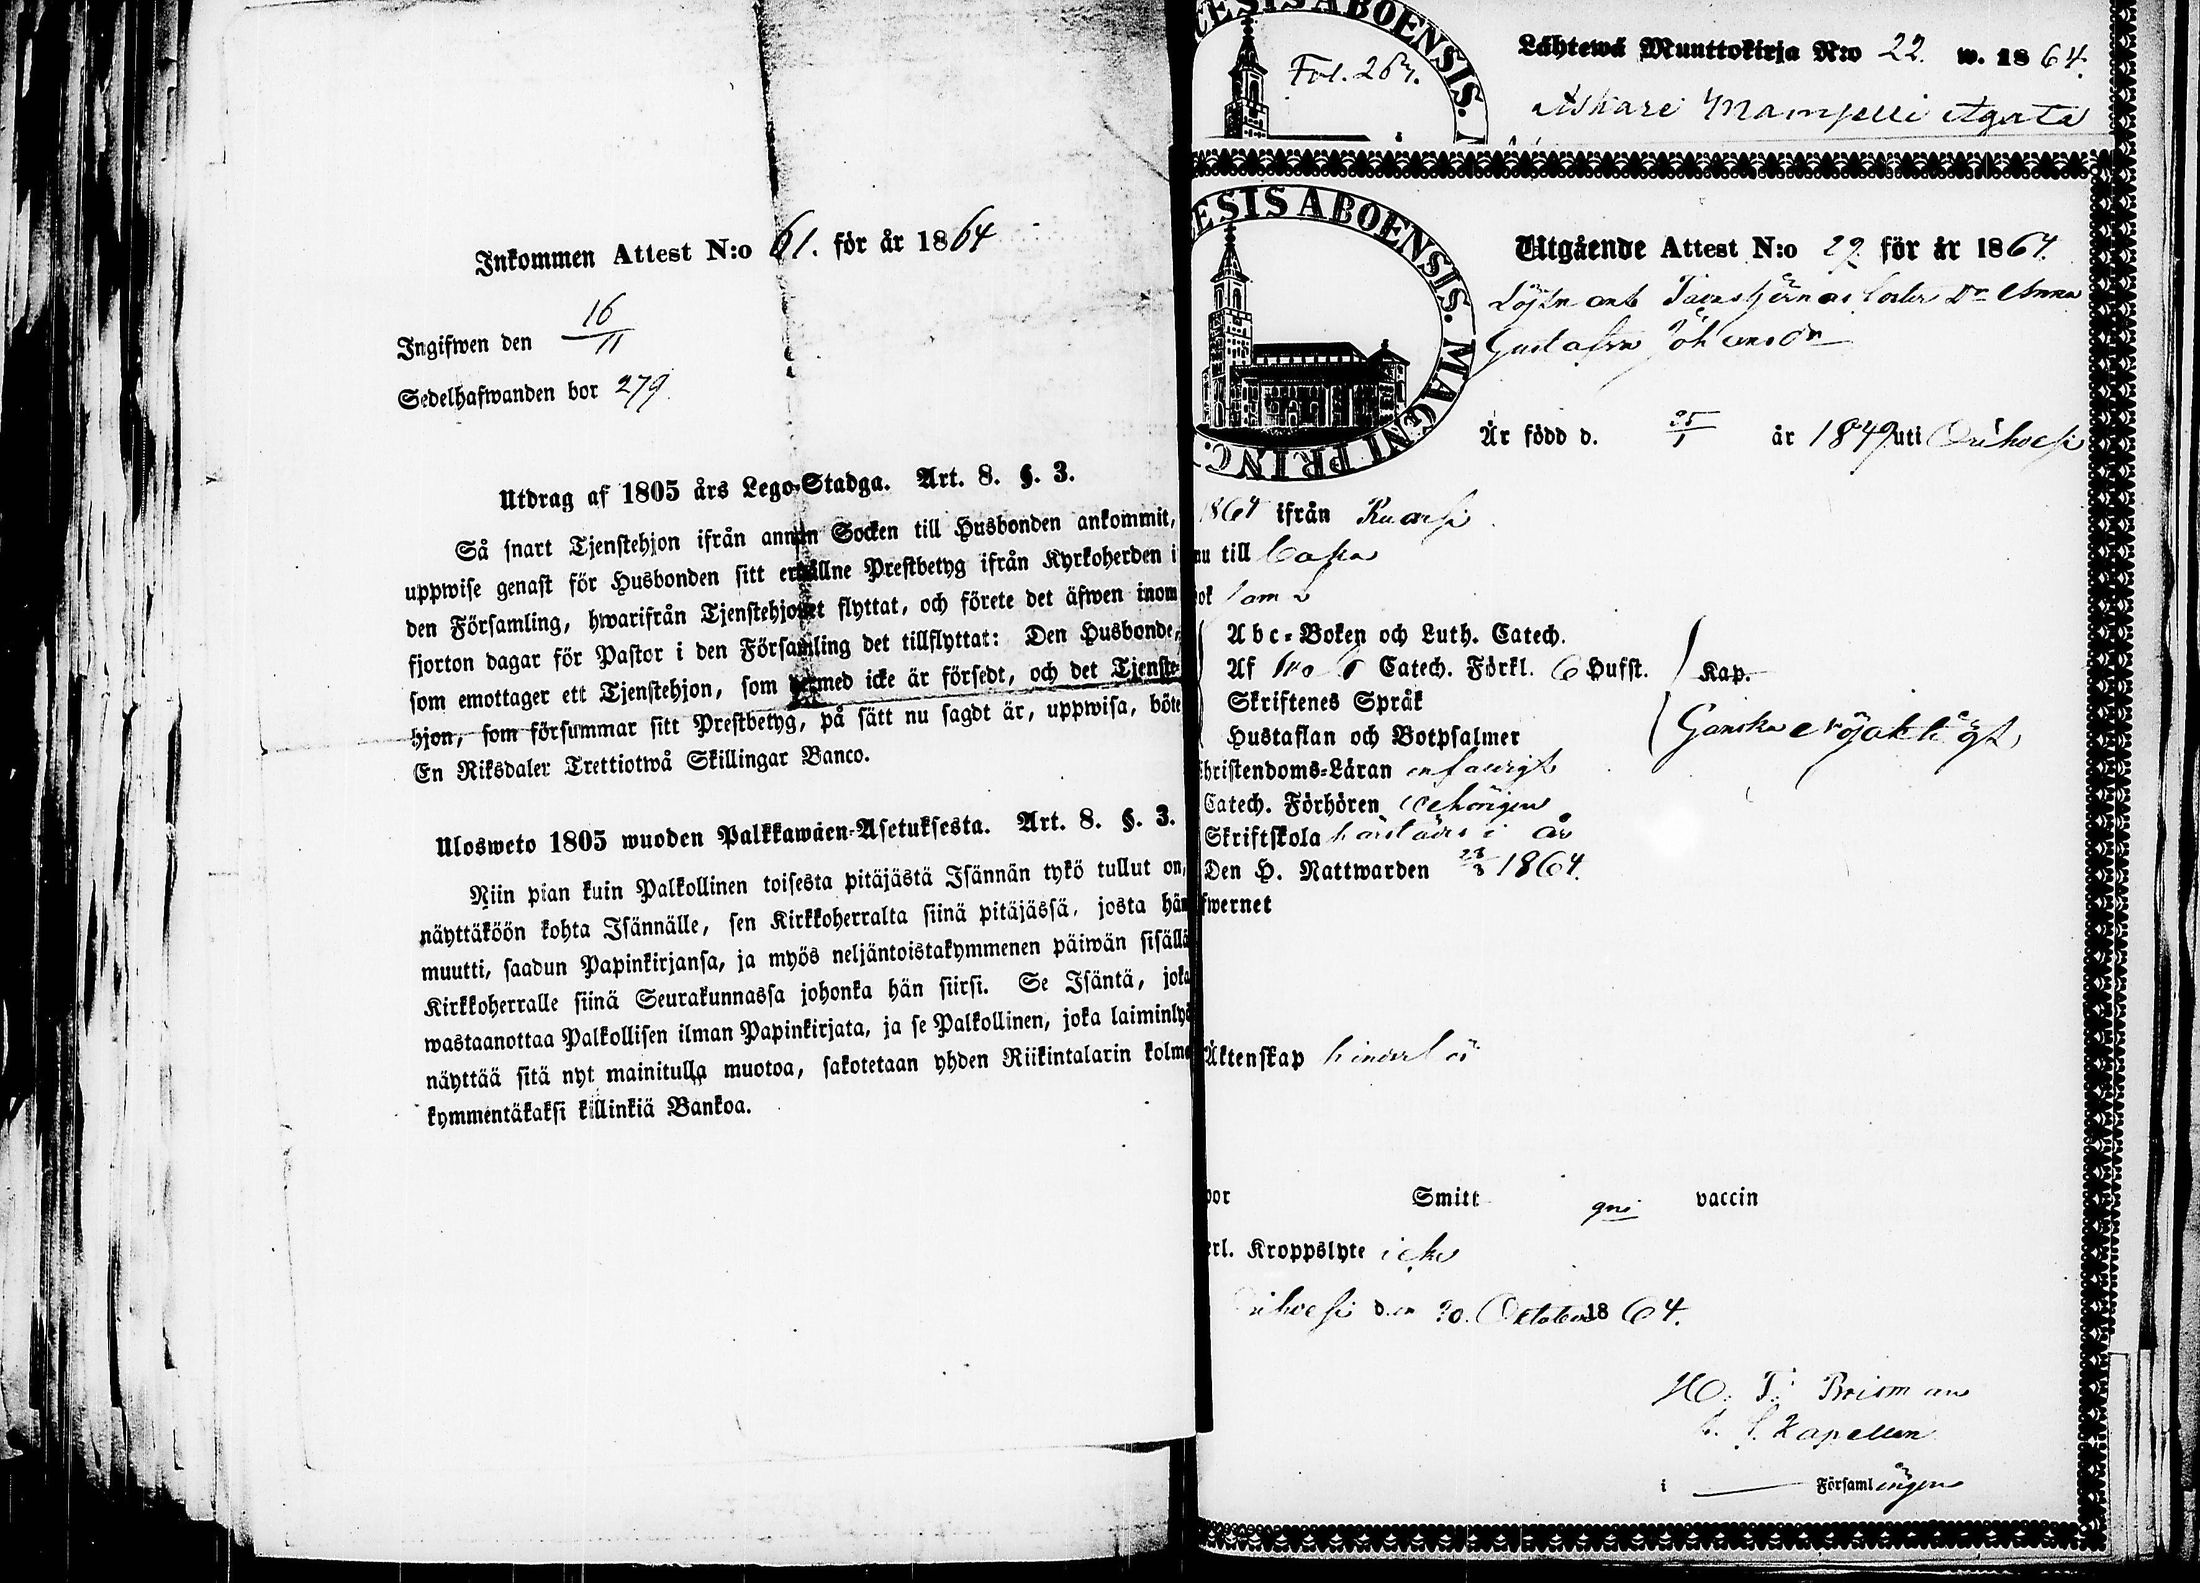 Inkommen Attest N:o 61. för år 1864
Ingifwen den 16/11
Sedelhafwanden bor 279.
Utdrag af 1805 års Lego-Stadga. Art. 8. §. 3.
Så snart Tjenstehjon ifrån annan Socken till Husbonden ankommit,
uppwise genast för Husbonden sitt erhållne Prestbetyg ifrån Kyrkoherden i
den Församling, hwarifrån Tjenstehjonet flyttat, och förete det äfwen inom
fjorton dagar för Pastor i den Församling det tillflyttat: Den Husbonde,
som emottager ett Tjenstehjon, som dermed icke är försedt, och det Tjenste-
hjon, som försummar sitt Prestbetyg, på sätt nu sagdt är, uppwisa, böte
En Riksdaler Trettiotwå Skillingar Banco.
Ulosweto 1805 wuoden Palkkawäen-Asetuksesta. Art. 8. §. 3.
Niin pian kuin Palkollinen toisesta pitäjästä Isännän tykö tullut on,
näyttäköön kohta Isännälle, sen Kirkkoherralta siinä pitäjässä, josta hän
muutti, saadun Papinkirjansa, ja myös neljäntoistakymmenen päiwän sisällä
Kirkkoherralle siinä Seurakunnassa johonka hän siirsi. Se Isäntä, joka
wastaanottaa Palkollisen ilman Papinkirjata, ja se Palkollinen, joka laiminlyö
näyttää sitä nyt mainitulla muotoa, sakotetaan yhden Riikintalarin kolme
kymmentäkaksi killinkiä Bankoa.
ESIS ABOENSIS.
Fol. 267.
Lähtewä Muuttokirja N:o 22. w. 1864.
Mamselli Agata
ESIS ABOENSIS. MAGNI PRINC.
Utgående Attest N:o 29. för år 1864.
Löjtnant Dr Anna
Gustafva Johansdr
Är född d. 25/1 år 1849 uti Orihvesi
1864 ifrån Ruovesi
nu till
ok
Abc-Boken och Luth. Catech.
Af Catech. Förkl. 6 Hufst. Kap.
Skriftenes Språk
Hustaflan och Botpsalmer
Ganska nöjaktigt
hristendoms-Läran enfaldigt
Catech. Förhören behörigen
Skriftskola i år
Den H. Nattwarden 28/8 1864.
fwernet
Äktenskap hinderlös
por Smitt gni vaccin
erl. Kroppslyte icke
rihvesi den 30. October 1864.
H. T.
Kapellan
i Församlingen